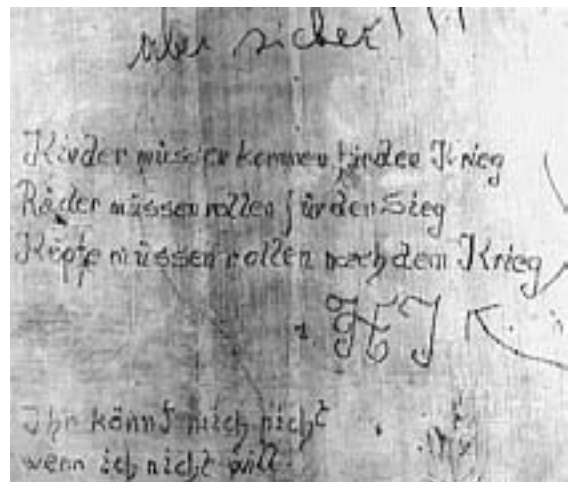 aber sicher!!!
Kinder müssen kommen für den Krieg
Räder müssen rollen für den Sieg
Köpfe müssen rollen nach dem Krieg
HJ
Ihr könnt mich nicht
wenn ich nicht will